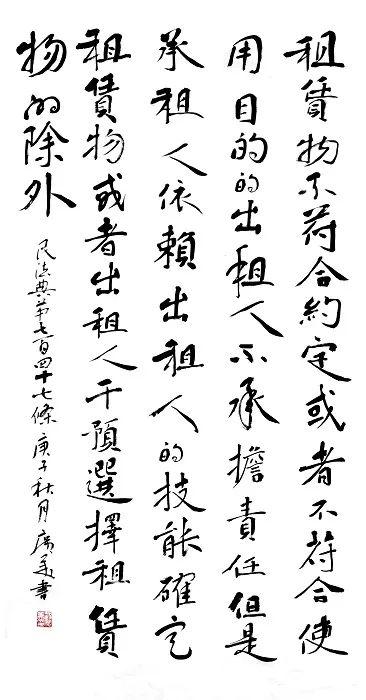 租賃物不符合約定或者不符合使
用目的的出租人不承擔責任但是
承租人依賴出租人的技能確定
租賃物或者出租人干預選擇租賃
物的除外
民法典第七百四十七條庚子秋月書